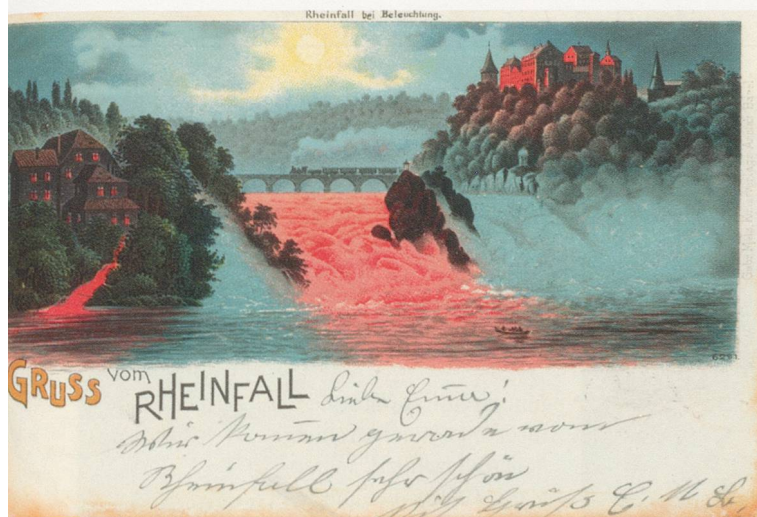 Rheinfall bei Beleuchtung.
6293
GRUSS vom RHEINFALL Liebe Emma!
Wir kommen gerade vom
Rheinfall sehr schön
Mit Gruß E. M. L.